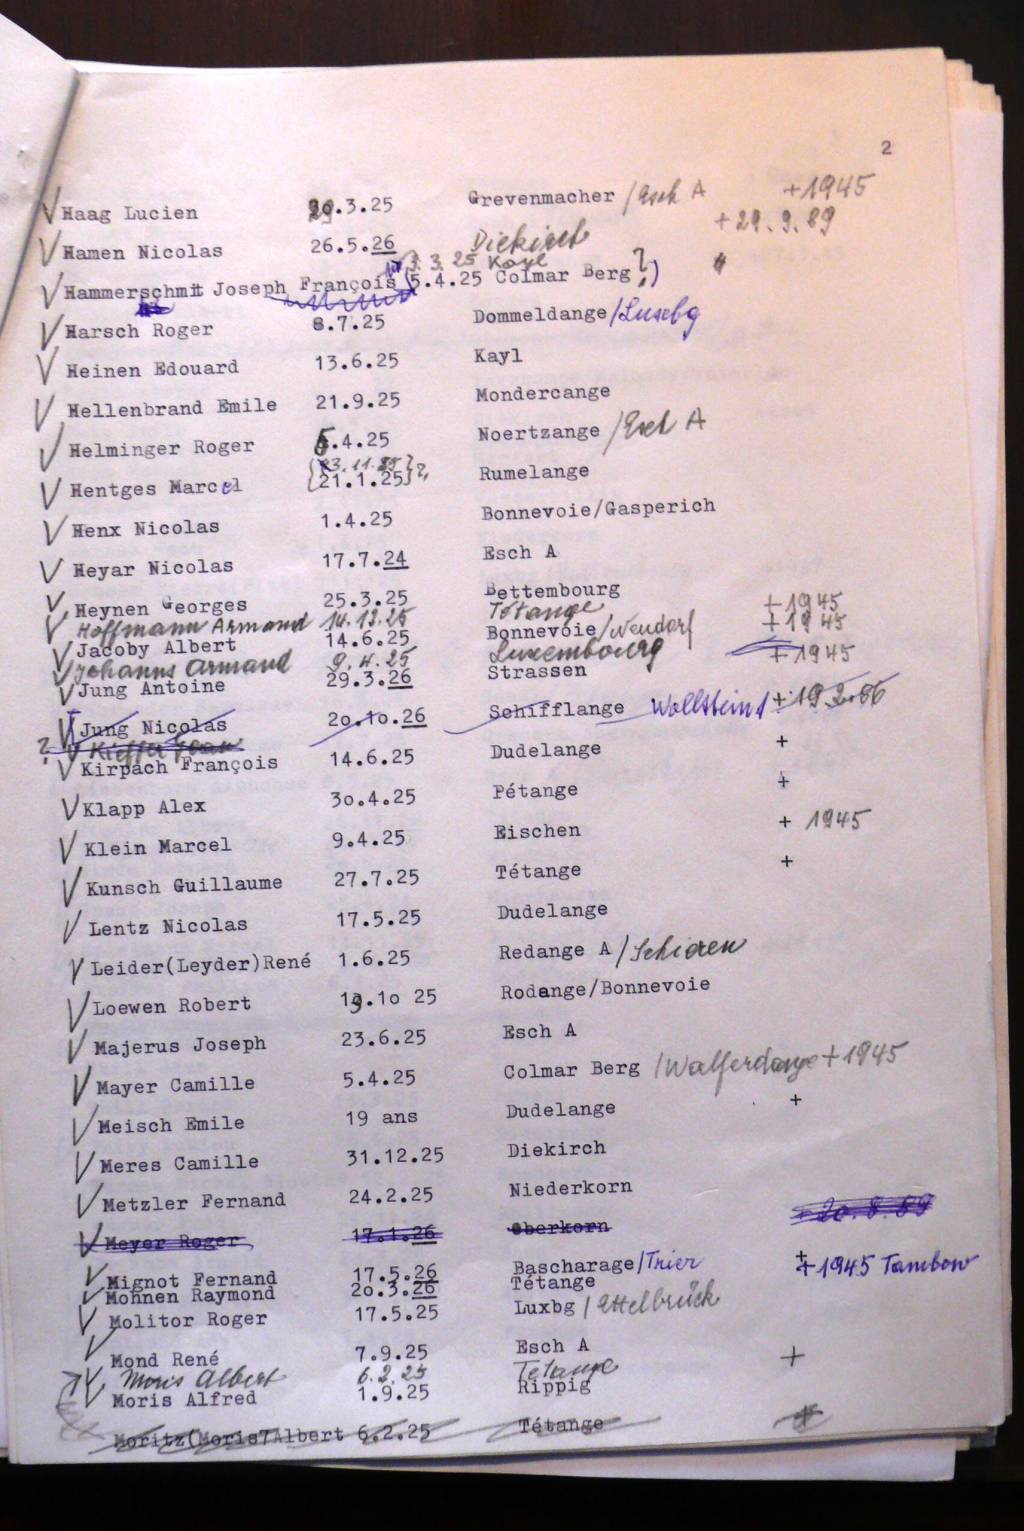 2
Haag Lucien .3.25 Grevenmacher /Esch A +1945
Hamen Nicolas 26.5.26 Diekirch +29.9.89
3.3.25 Kayl
Hammerschmit Joseph François (5.4.25 Colmar Berg?)
Harsch Roger 8.7.25 Dommeldange/Luxbg
Heinen Edouard 13.6.25 Kayl
Hellenbrand Emile 21.9.25 Mondercange
Helminger Roger 5.4.25 Noertzange /Esch A
Hentges Marcel 21.1.25 ? Rumelange
Henx Nicolas 1.4.25 Bonnevoie/Gasperich
Heyar Nicolas 17.7.24 Esch A
Heynen Georges 25.3.25 Bettembourg
Hoffmann Armand 14.12.25 Tétange +1945
Jacoby Albert 14.6.25 Bonnevoie/Neudorf +1945
Johanns Armand 9.4.25 Luxembourg
Jung Antoine 29.3.26 Strassen +1945
Jung Nicolas 20.10.26 Schifflange Wollstein
? Kieffer Jean
Kirpach François 14.6.25 Dudelange +
Klapp Alex 30.4.25 Pétange +
Klein Marcel 9.4.25 Eischen + 1945
Kunsch Guillaume 27.7.25 Tétange +
Lentz Nicolas 17.5.25 Dudelange
Leider(Leyder)René 1.6.25 Redange A /Schieren
Loewen Robert 19.10 25 Rodange/Bonnevoie
Majerus Joseph 23.6.25 Esch A
Mayer Camille 5.4.25 Colmar Berg /Walferdange +1945
Meisch Emile 19 ans Dudelange +
Meres Camille 31.12.25 Diekirch
Metzler Fernand 24.2.25 Niederkorn
Meyer Roger 17.1.26 Oberkorn +20.8.89
Mignot Fernand 17.5.26 Bascharage/Trier +
Mohnen Raymond 20.3.26 Tétange +1945 Tambow
Molitor Roger 17.5.25 Luxbg /Ettelbrück
Mond René 7.9.25 Esch A
Moris Albert 6.2.25 Tétange +
Moris Alfred 1.9.25 Rippig
Moritz(Moris?Albert 6.2.25 Tétange +